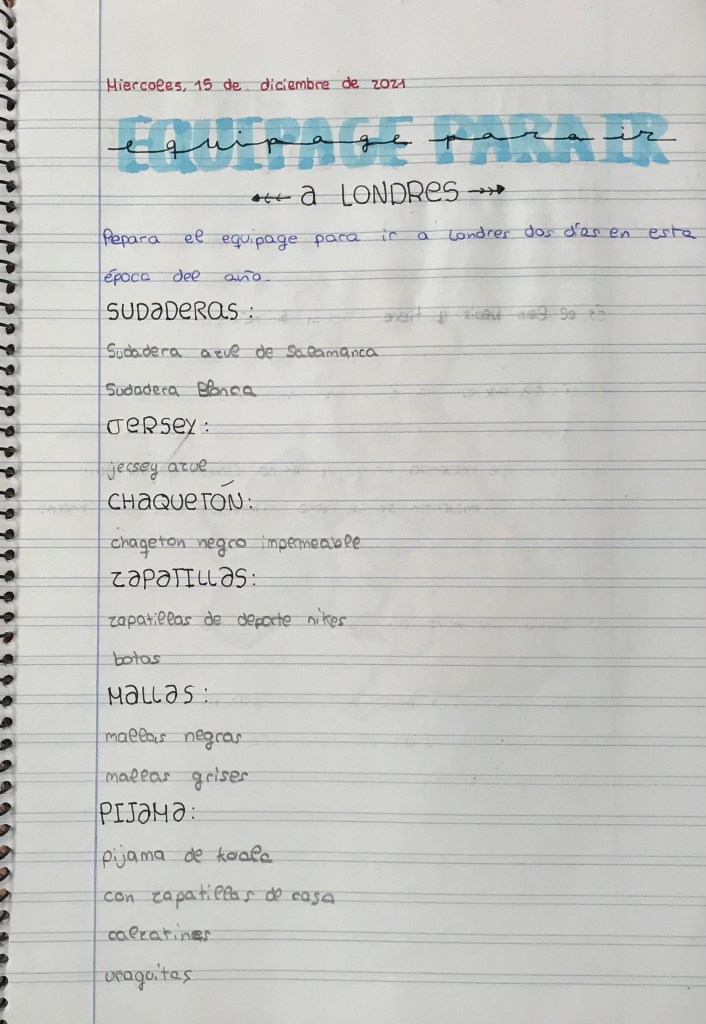 Miercoles, 15 de diciembre de 2021
EQUIPAGE PARA IR
equipage para ir
a LONDRES
Prepara el equipage para ir a Londres dos días en esta
época del año.
SUDADERAS:
Sudadera azul de Salamanca
Sudadera Blanca
JERSEY:
jersey azul
CHAQUETÓN:
chaqeton negro impermeable
ZAPATILLAS:
zapatillas de deporte nikes
botas
MALLAS:
mallas negras
mallas grises
PIJAMA:
pijama de koala
con zapatillas de casa
calzatines